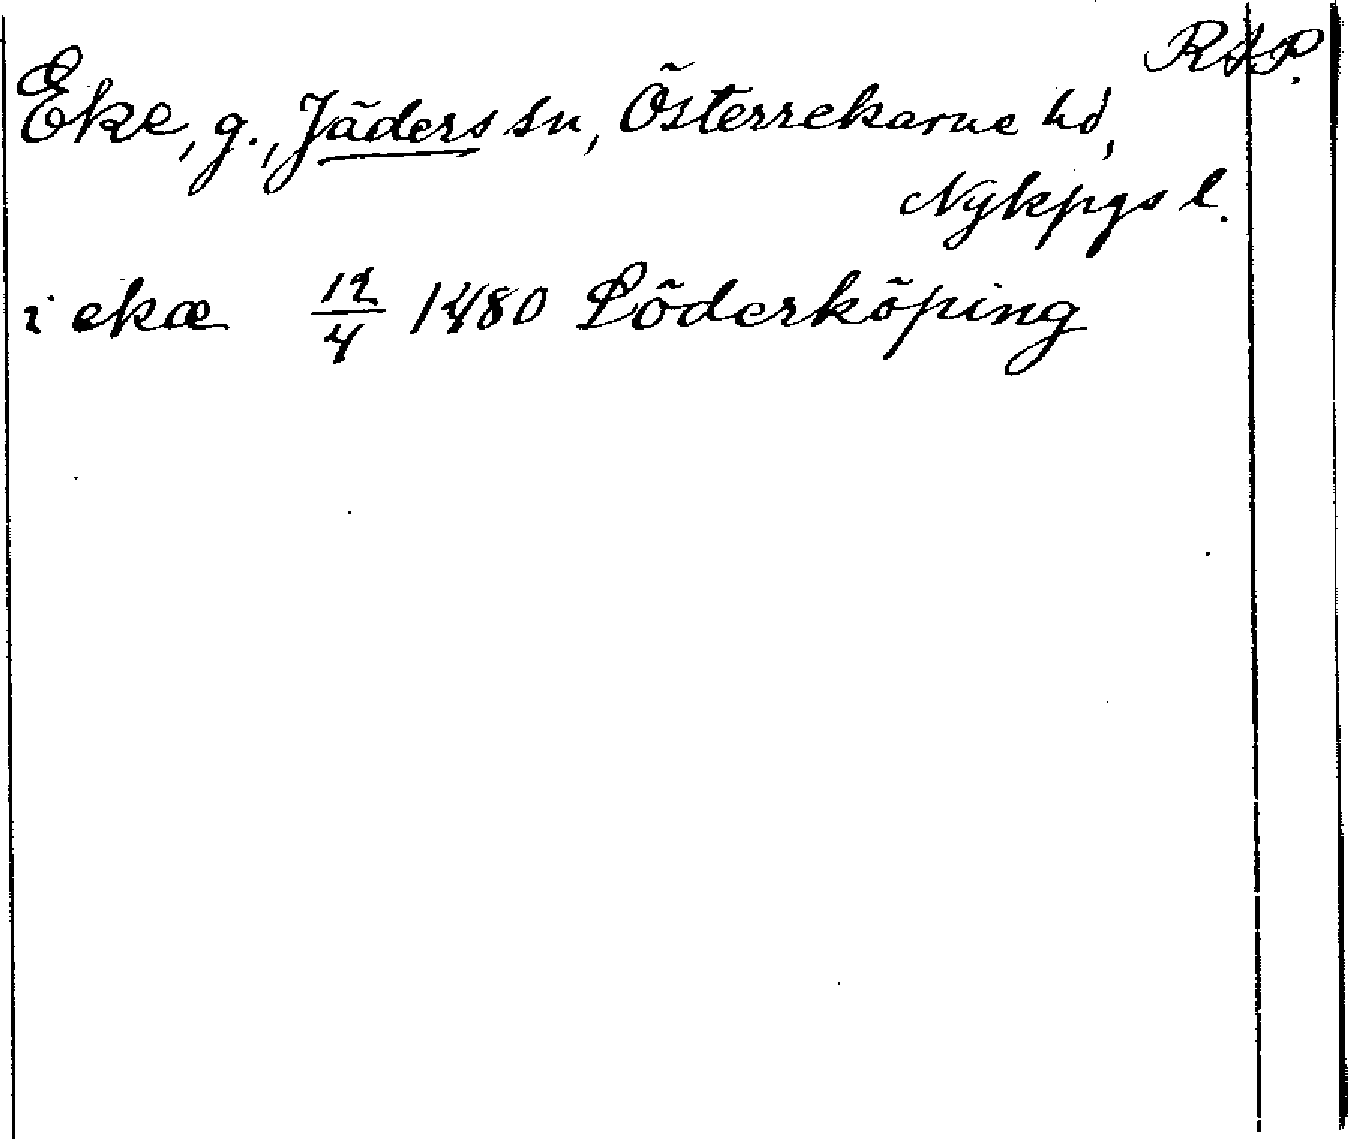 RAP.
Eke, g., Jäders sn, Österrekarne hd,
Nykpgs l.
i ekæ 12/4 1480 Söderköping